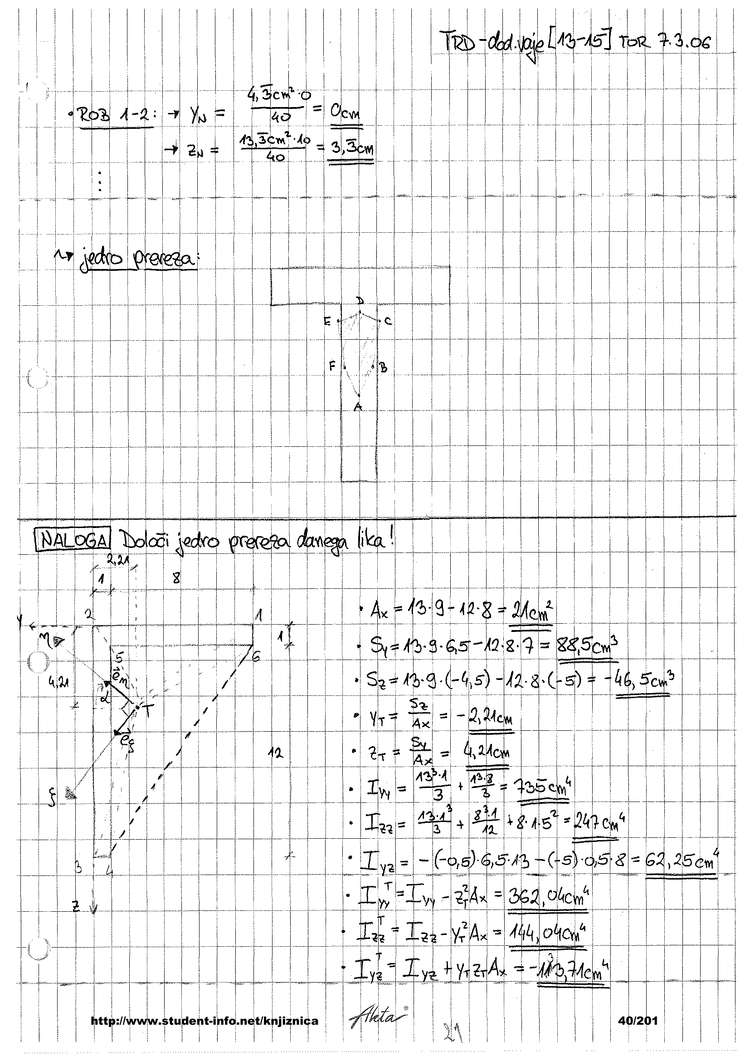 TRD-dod.vaje [13-15] TOR 7.3.06
• ROB 1-2: → Y_N = 4,3̄cm²·0 / 40 = 0cm
→ Z_N = 13,3̄cm²·10 / 40 = 3,3̄cm
⋮
↝ jedro prereza:
D
E C
F B
A
NALOGA Določi jedro prereza danega lika!
2,21
1 8
Y 2 1
η 1
5 6
4,21 e⃗η
α T
e⃗ξ
12
ξ
3 4
z
• Ax = 13·9-12·8 = 21cm²
• Sy = 13·9·6,5-12·8·7 = 88,5cm³
• Sz = 13·9·(-4,5)-12·8·(-5) = -46,5cm³
• yT = Sz/Ax = -2,21cm
• zT = Sy/Ax = 4,21cm
• Iyy = 13³·1/3 + 1³·8/3 = 735cm⁴
• Izz = 13·1³/3 + 8³·1/12 + 8·1·5² = 247cm⁴
• Iyz = -(-0,5)·6,5·13-(-5)·0,5·8 = 62,25cm⁴
• Iyyᵀ = Iyy - zT²Ax = 362,04cm⁴
• Izzᵀ = Izz - yT²Ax = 144,04cm⁴
• Iyzᵀ = Iyz + yT zT Ax = -133,71cm⁴
http://www.student-info.net/knjiznica
21
40/201